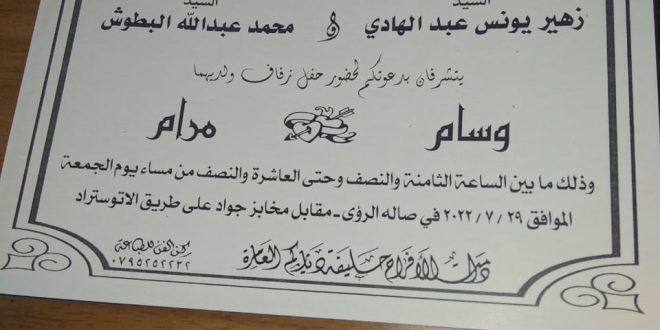 السيد السيد
زهير يونس عبد الهادي و محمد عبدالله البطوش
يتشرفان بدعوتكم لحضور حفل زفاف ولديهما
وسام مرام
وذلك ما بين الساعة الثامنة والنصف وحتى العاشرة والنصف من مساء يوم الجمعة
الموافق ٢٠٢٢/٧/٢٩ في صاله الرؤى - مقابل مخابز جواد على طريق الاتوستراد
دامت الافراح حليفة دياركم العامرة
ركن الفن للطباعة
٠٧٩٥٢٥٢٢٣٢